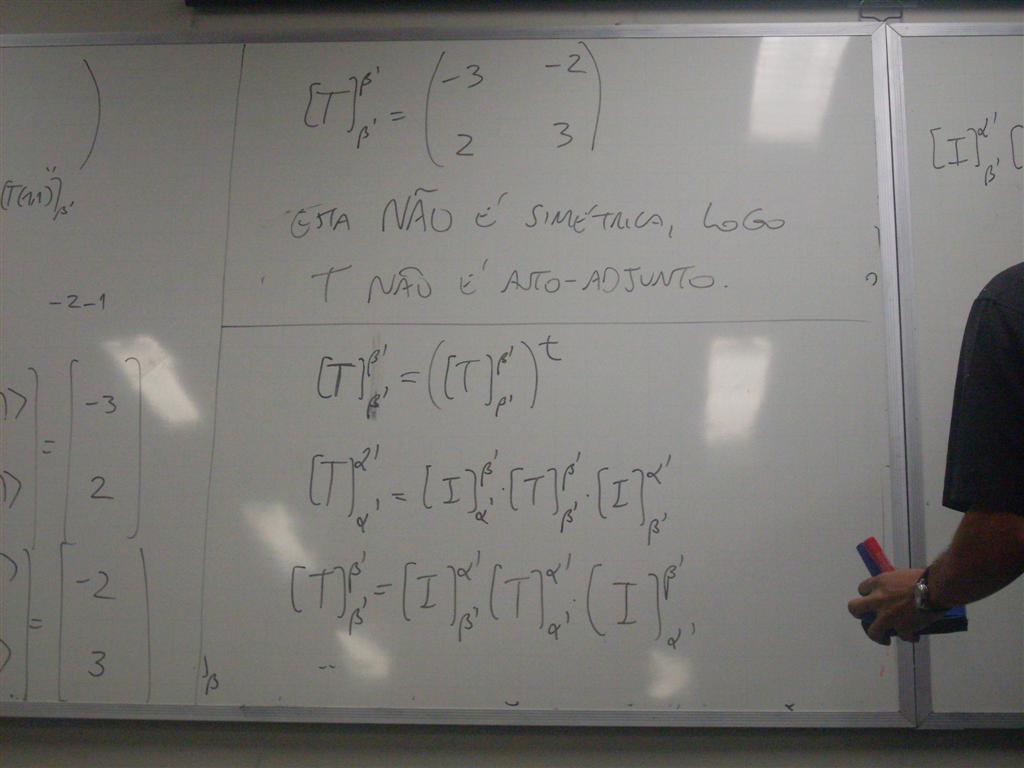 [T]^{β'}_{β'} = ( -3 -2
2 3 )
ESTA NÃO É SIMÉTRICA, LOGO
T NÃO É AUTO-ADJUNTO.
[T]^{β'}_{β'} = ([T]^{β'}_{β'})^t
[T]^{α'}_{α'} = [I]^{β'}_{α'} · [T]^{β'}_{β'} · [I]^{α'}_{β'}
[T]^{β'}_{β'} = [I]^{α'}_{β'} [T]^{α'}_{α'} · [I]^{β'}_{α'}
-2-1
= [ -3
2 ]
= [ -2
3 ]
[I]^{α'}_{β'} [